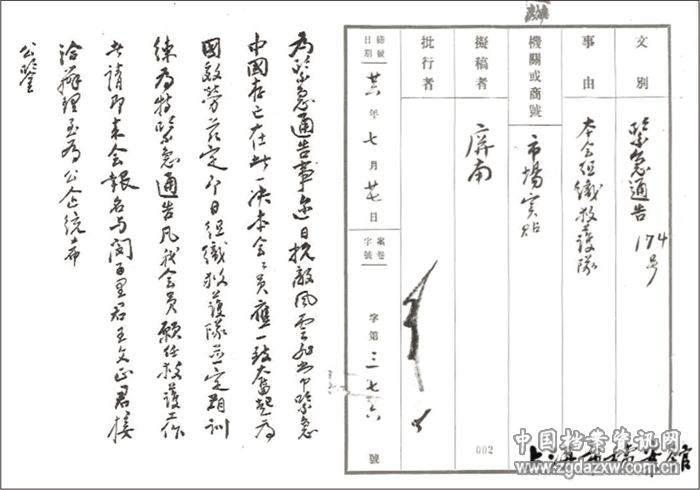 文別 緊急通告 174號
事由 本会組織救護隊
機關或商號 市場实貼
擬稿者 屏南
批行者
總號
日期 廿六年七月廿七日
案卷字號 字第三一七六號
002
為緊急通告事邇日抗敵風雲非常緊急
中國存亡在此一決本会会員應一致奮起為
國效勞茲定即日組織救護隊並定期訓
練為特緊急通告凡我会員願任救護工作
者請即來会報名与閔百里君王文正君接
洽辦理至為公企統希
公鑒
中国档案资讯网
www.zgdazxw.com.cn
上海市檔案館